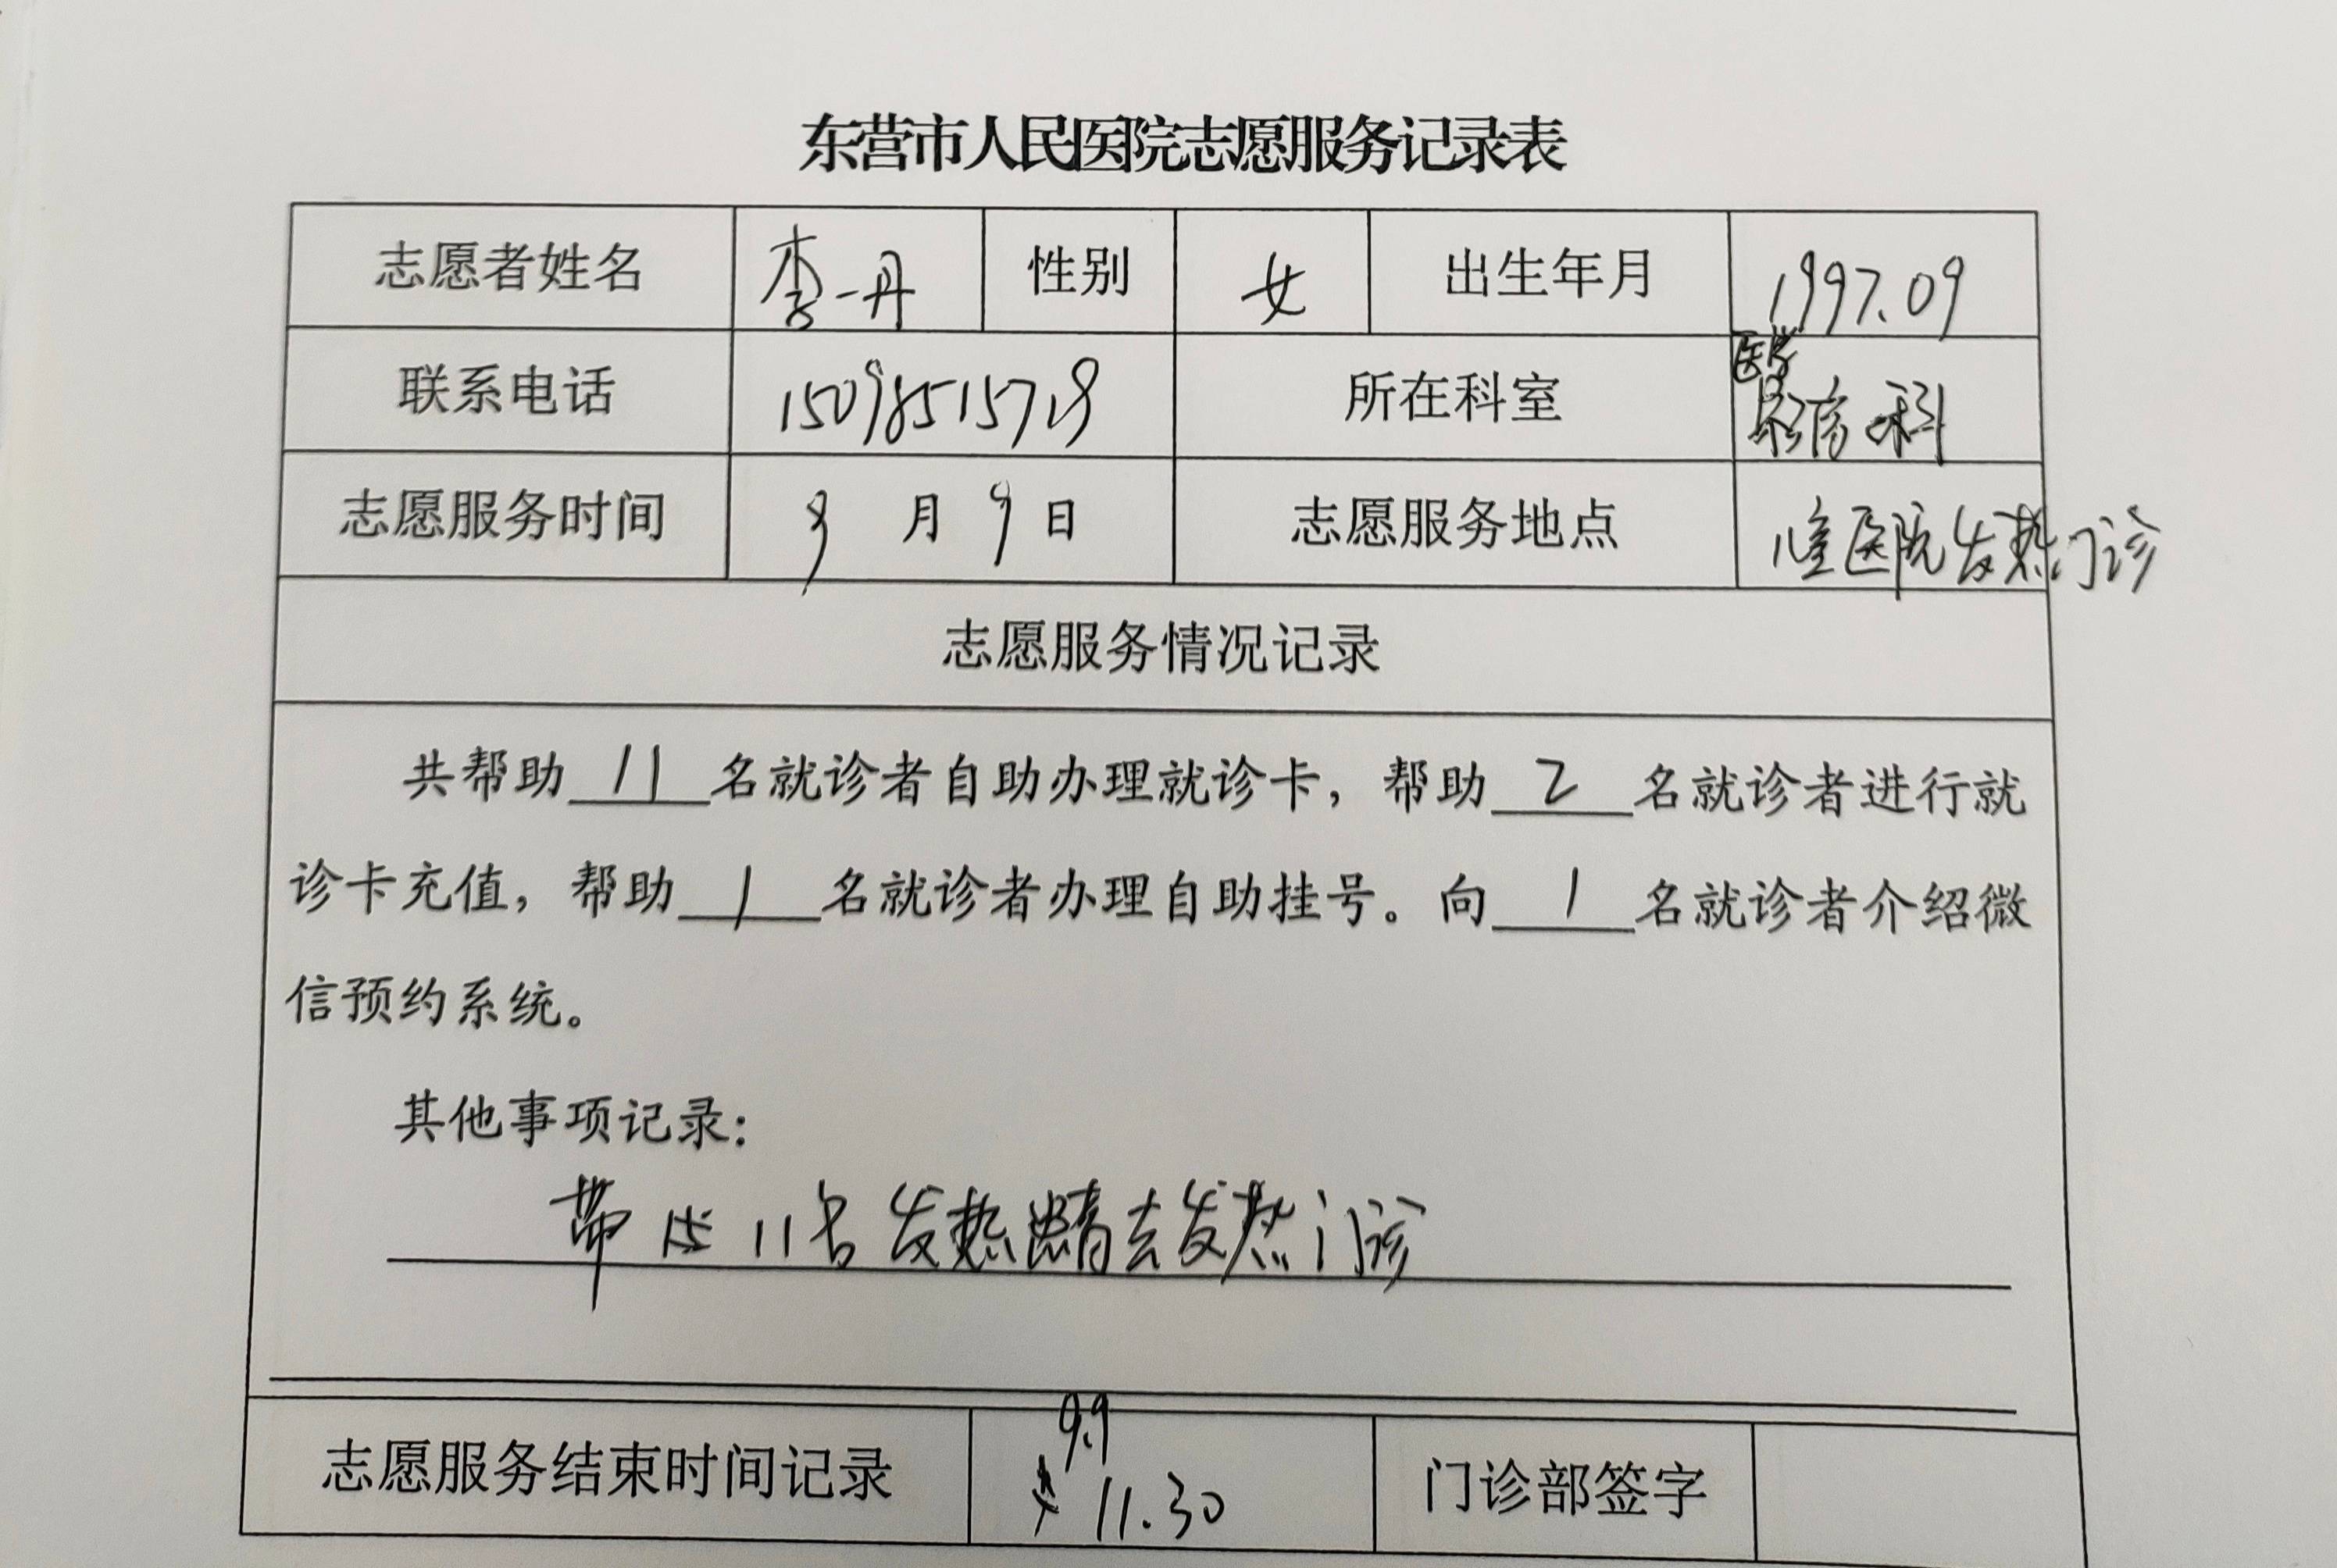 东营市人民医院志愿服务记录表
志愿者姓名 李一丹 性别 女 出生年月 1997.09
联系电话 所在科室 医学教育科
志愿服务时间 9月9日 志愿服务地点 儿童医院发热门诊
志愿服务情况记录
共帮助11名就诊者自助办理就诊卡，帮助2名就诊者进行就
诊卡充值，帮助1名就诊者办理自助挂号。向1名就诊者介绍微
信预约系统。
其他事项记录：
带 11名发热患者去发热门诊
志愿服务结束时间记录 9.9 11.30 门诊部签字